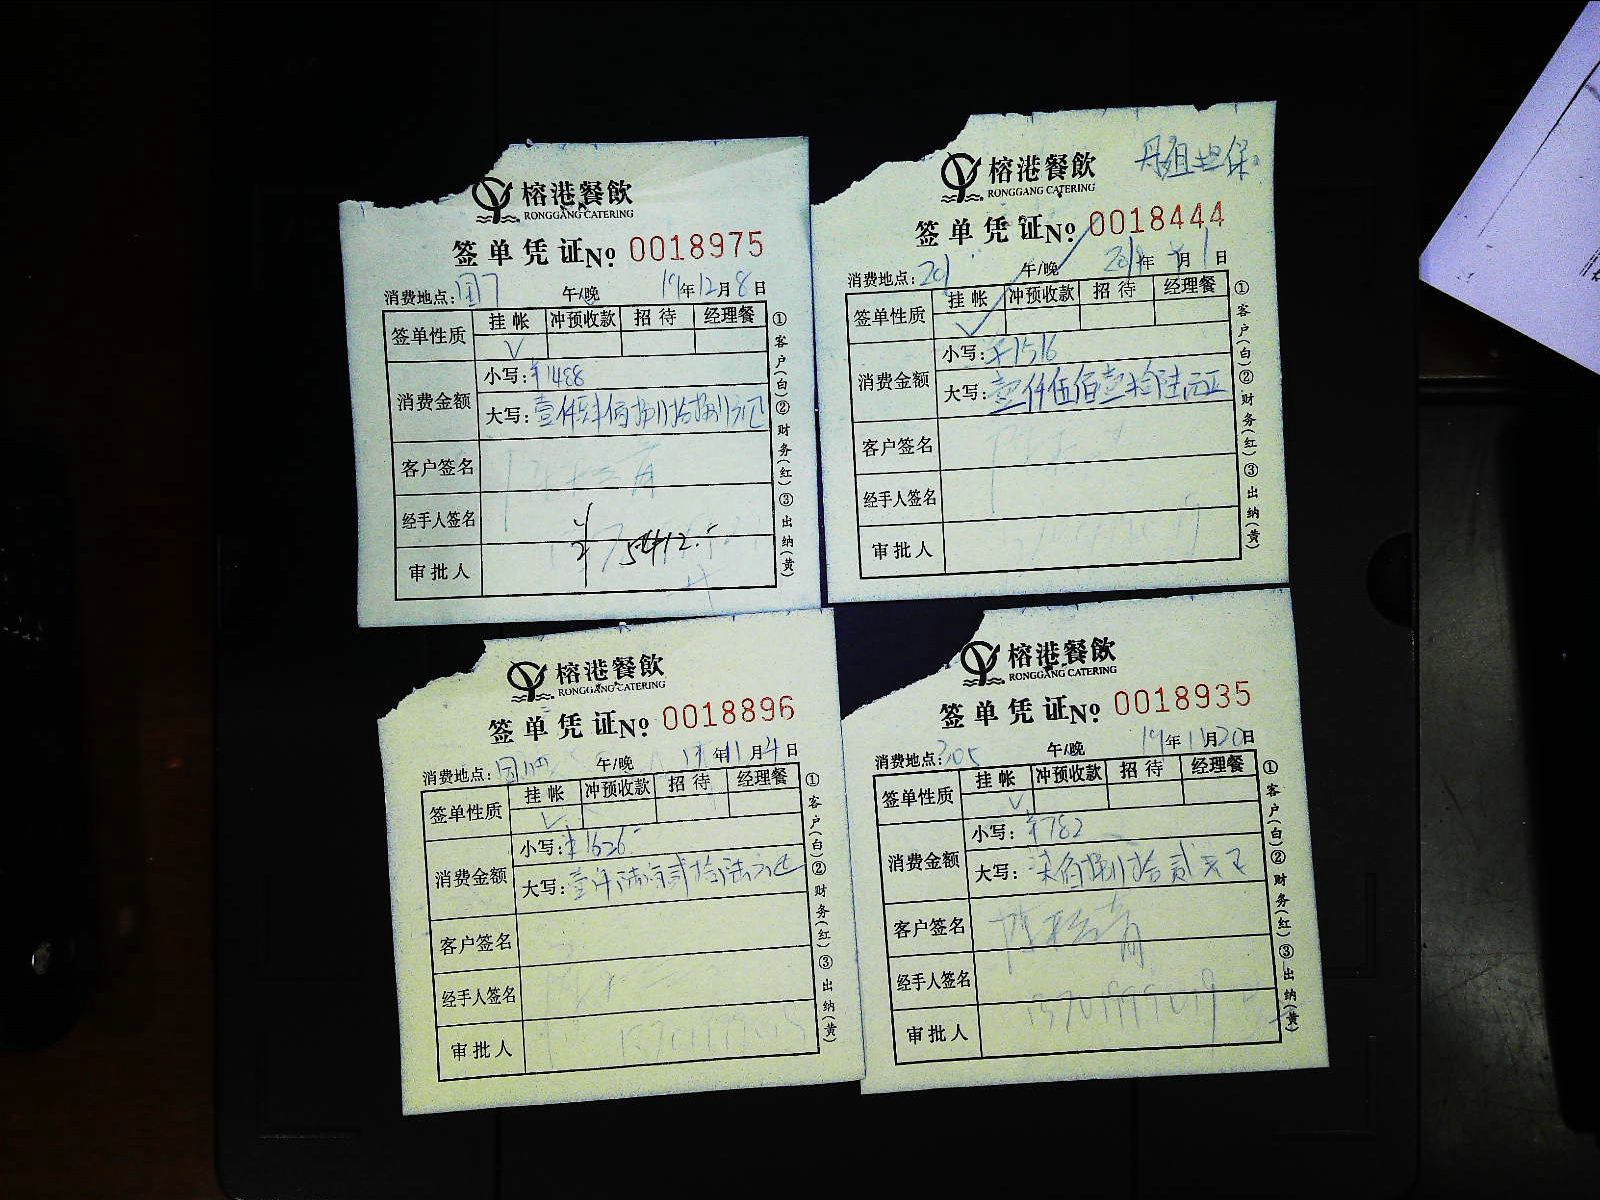 榕港餐飲
RONGGANG CATERING
签单凭证No 0018975
消费地点: 午/晚 19年12月8日
签单性质 挂帐 冲预收款 招待 经理餐
√
消费金额 小写:¥1488
大写:壹仟肆佰捌拾捌元正
客户签名
经手人签名
¥5412.-
审批人
①客户(白)②财务(红)③出纳(黄)
丹姐担保
榕港餐飲
RONGGANG CATERING
签单凭证No 0018444
消费地点:201 午/晚 2019年 月1日
签单性质 挂帐 冲预收款 招待 经理餐
√
消费金额 小写:¥1516
大写:壹仟伍佰壹拾陆元正
客户签名
经手人签名
审批人
①客户(白)②财务(红)③出纳(黄)
榕港餐飲
RONGGANG CATERING
签单凭证No 0018896
消费地点: 午/晚 19年11月4日
签单性质 挂帐 冲预收款 招待 经理餐
√
消费金额 小写:¥1626-
大写:壹仟陆佰贰拾陆元正
客户签名
经手人签名
审批人
①客户(白)②财务(红)③出纳(黄)
榕港餐飲
RONGGANG CATERING
签单凭证No 0018935
消费地点:305 午/晚 19年11月20日
签单性质 挂帐 冲预收款 招待 经理餐
√
消费金额 小写:¥782
大写:柒佰捌拾贰元正
客户签名
经手人签名
审批人
①客户(白)②财务(红)③出纳(黄)